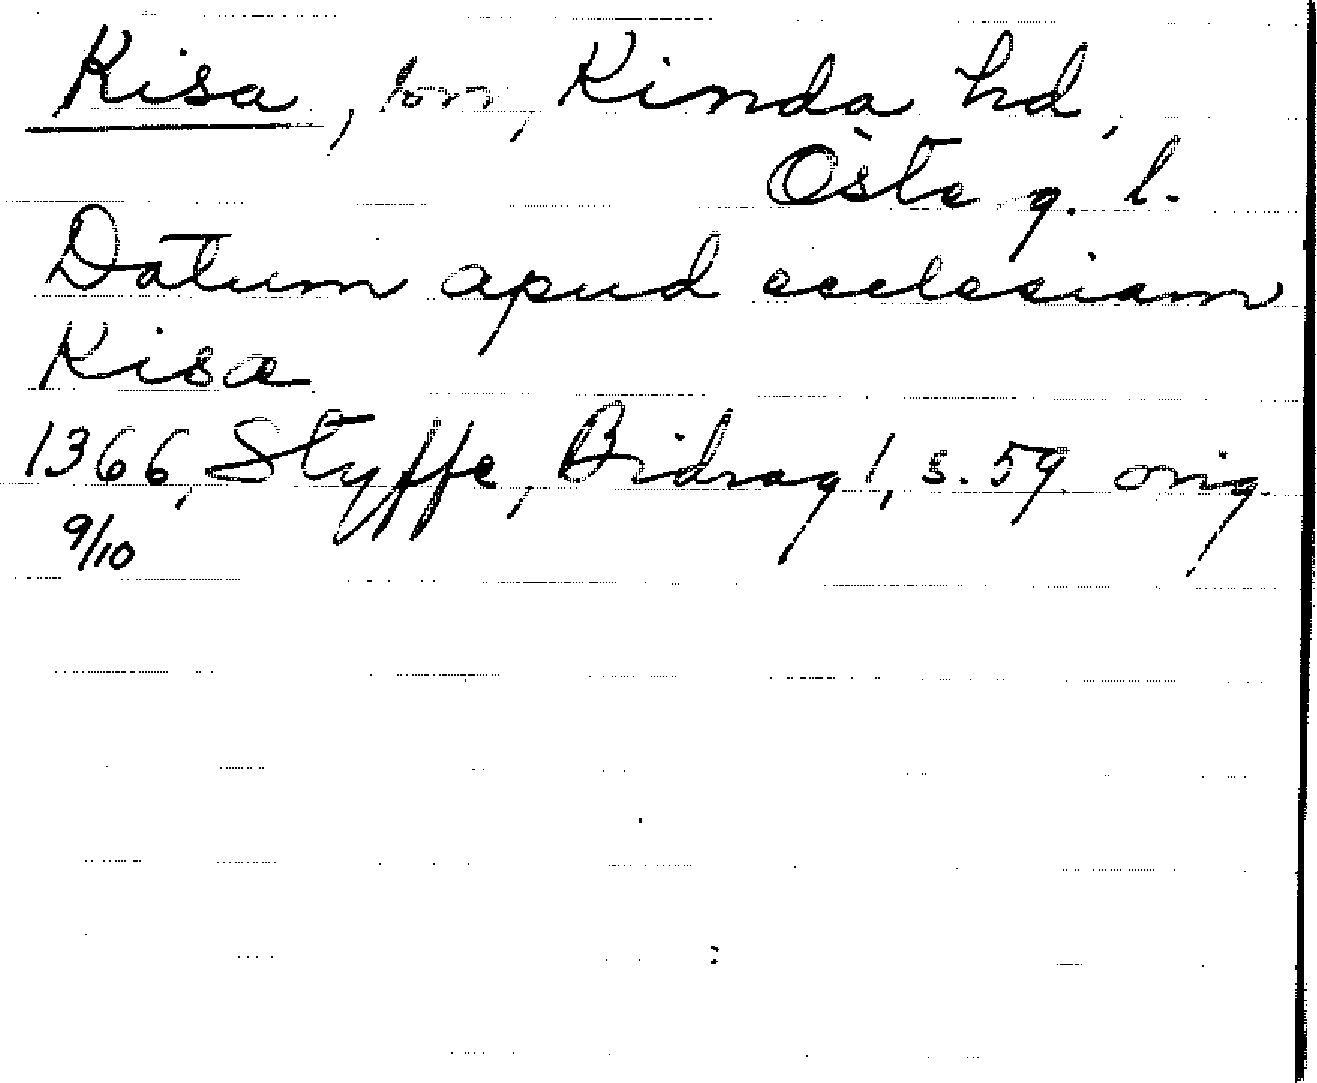 Kisa, sn, Kinda hd,
Österg. l.
Datum apud ecclesiam
Kisa
1366, Styffe, Bidrag 1, s. 59 orig.
9/10